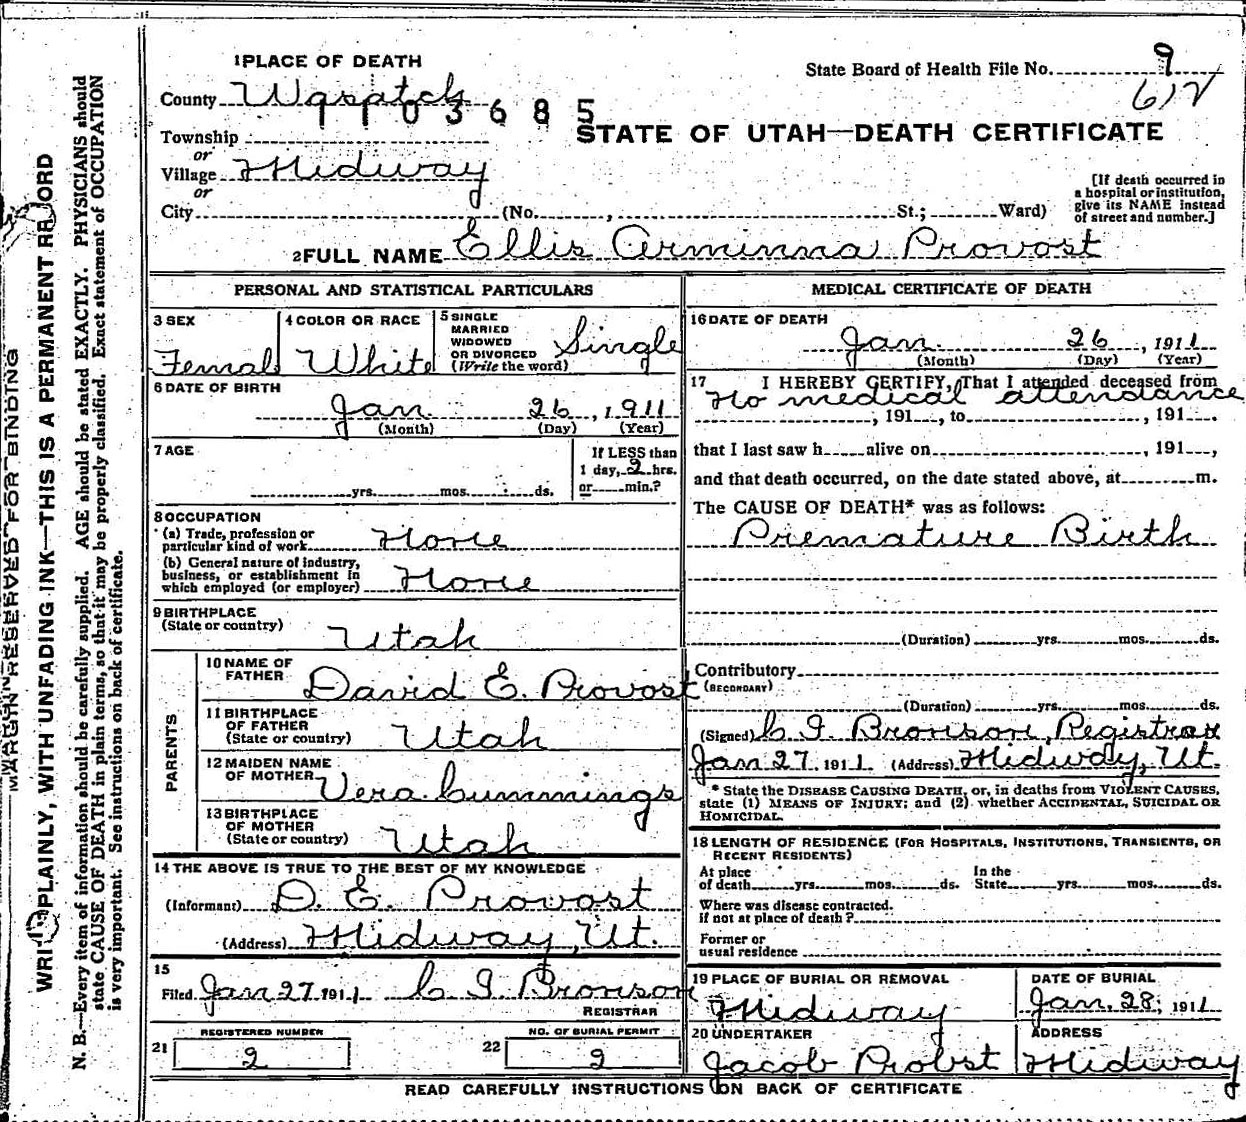 1 PLACE OF DEATH
State Board of Health File No. 9
County Wasatch
612
1103685
STATE OF UTAH—DEATH CERTIFICATE
Township
or
Village Midway
or
City (No. , St.; Ward)
[If death occurred in a hospital or institution, give its NAME instead of street and number.]
2 FULL NAME Ellis Arminna Provost
PERSONAL AND STATISTICAL PARTICULARS
3 SEX Female
4 COLOR OR RACE White
5 SINGLE MARRIED WIDOWED OR DIVORCED (Write the word) Single
6 DATE OF BIRTH
Jan. 26, 1911
(Month) (Day) (Year)
7 AGE
yrs. mos. ds.
If LESS than 1 day, 2 hrs. or min.?
8 OCCUPATION
(a) Trade, profession or particular kind of work None
(b) General nature of industry, business, or establishment in which employed (or employer) None
9 BIRTHPLACE
(State or country) Utah
PARENTS
10 NAME OF FATHER David E. Provost
11 BIRTHPLACE OF FATHER (State or country) Utah
12 MAIDEN NAME OF MOTHER Vera Cummings
13 BIRTHPLACE OF MOTHER (State or country) Utah
14 THE ABOVE IS TRUE TO THE BEST OF MY KNOWLEDGE
(Informant) D. E. Provost
(Address) Midway, Ut.
15
Filed Jan 27 1911 C I Bronson
REGISTRAR
REGISTERED NUMBER
21 2
NO. OF BURIAL PERMIT
22 2
MEDICAL CERTIFICATE OF DEATH
16 DATE OF DEATH
Jan. 26, 1911
(Month) (Day) (Year)
17 I HEREBY CERTIFY, That I attended deceased from
No medical attendance
, 191 , to , 191 .
that I last saw h alive on , 191 ,
and that death occurred, on the date stated above, at m.
The CAUSE OF DEATH* was as follows:
Premature Birth
(Duration) yrs. mos. ds.
Contributory
(SECONDARY)
(Duration) yrs. mos. ds.
(Signed) C. I. Bronson, Registrar
Jan 27 1911 (Address) Midway, Ut.
* State the DISEASE CAUSING DEATH, or, in deaths from VIOLENT CAUSES,
state (1) MEANS OF INJURY; and (2) whether ACCIDENTAL, SUICIDAL OR
HOMICIDAL.
18 LENGTH OF RESIDENCE (FOR HOSPITALS, INSTITUTIONS, TRANSIENTS, OR
RECENT RESIDENTS)
At place of death yrs. mos. ds. In the State yrs. mos. ds.
Where was disease contracted.
if not at place of death?
Former or
usual residence
19 PLACE OF BURIAL OR REMOVAL
Midway
DATE OF BURIAL
Jan. 28, 1911
20 UNDERTAKER
Jacob Probst
ADDRESS
Midway
READ CAREFULLY INSTRUCTIONS ON BACK OF CERTIFICATE
MARGIN RESERVED FOR BINDING
WRITE PLAINLY, WITH UNFADING INK—THIS IS A PERMANENT RECORD
N. B.—Every item of information should be carefully supplied. AGE should be stated EXACTLY. PHYSICIANS should
state CAUSE OF DEATH in plain terms, so that it may be properly classified. Exact statement of OCCUPATION
is very important. See instructions on back of certificate.